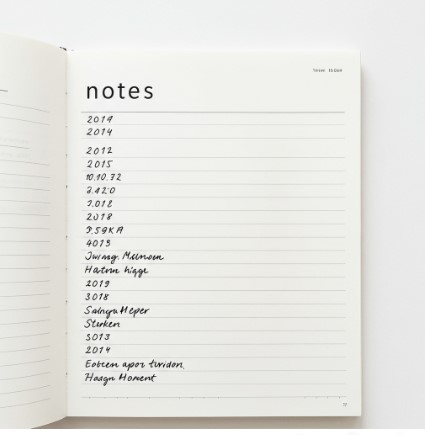 notes
2014
2014
2012
2015
10.10.72
3.420
1.018
2018
9.59KA
4013
Hatum higge
2019
3018
Salnyu Heper
Sterken
3013
2014
Eotcen apor twidon.
Haagn Homent